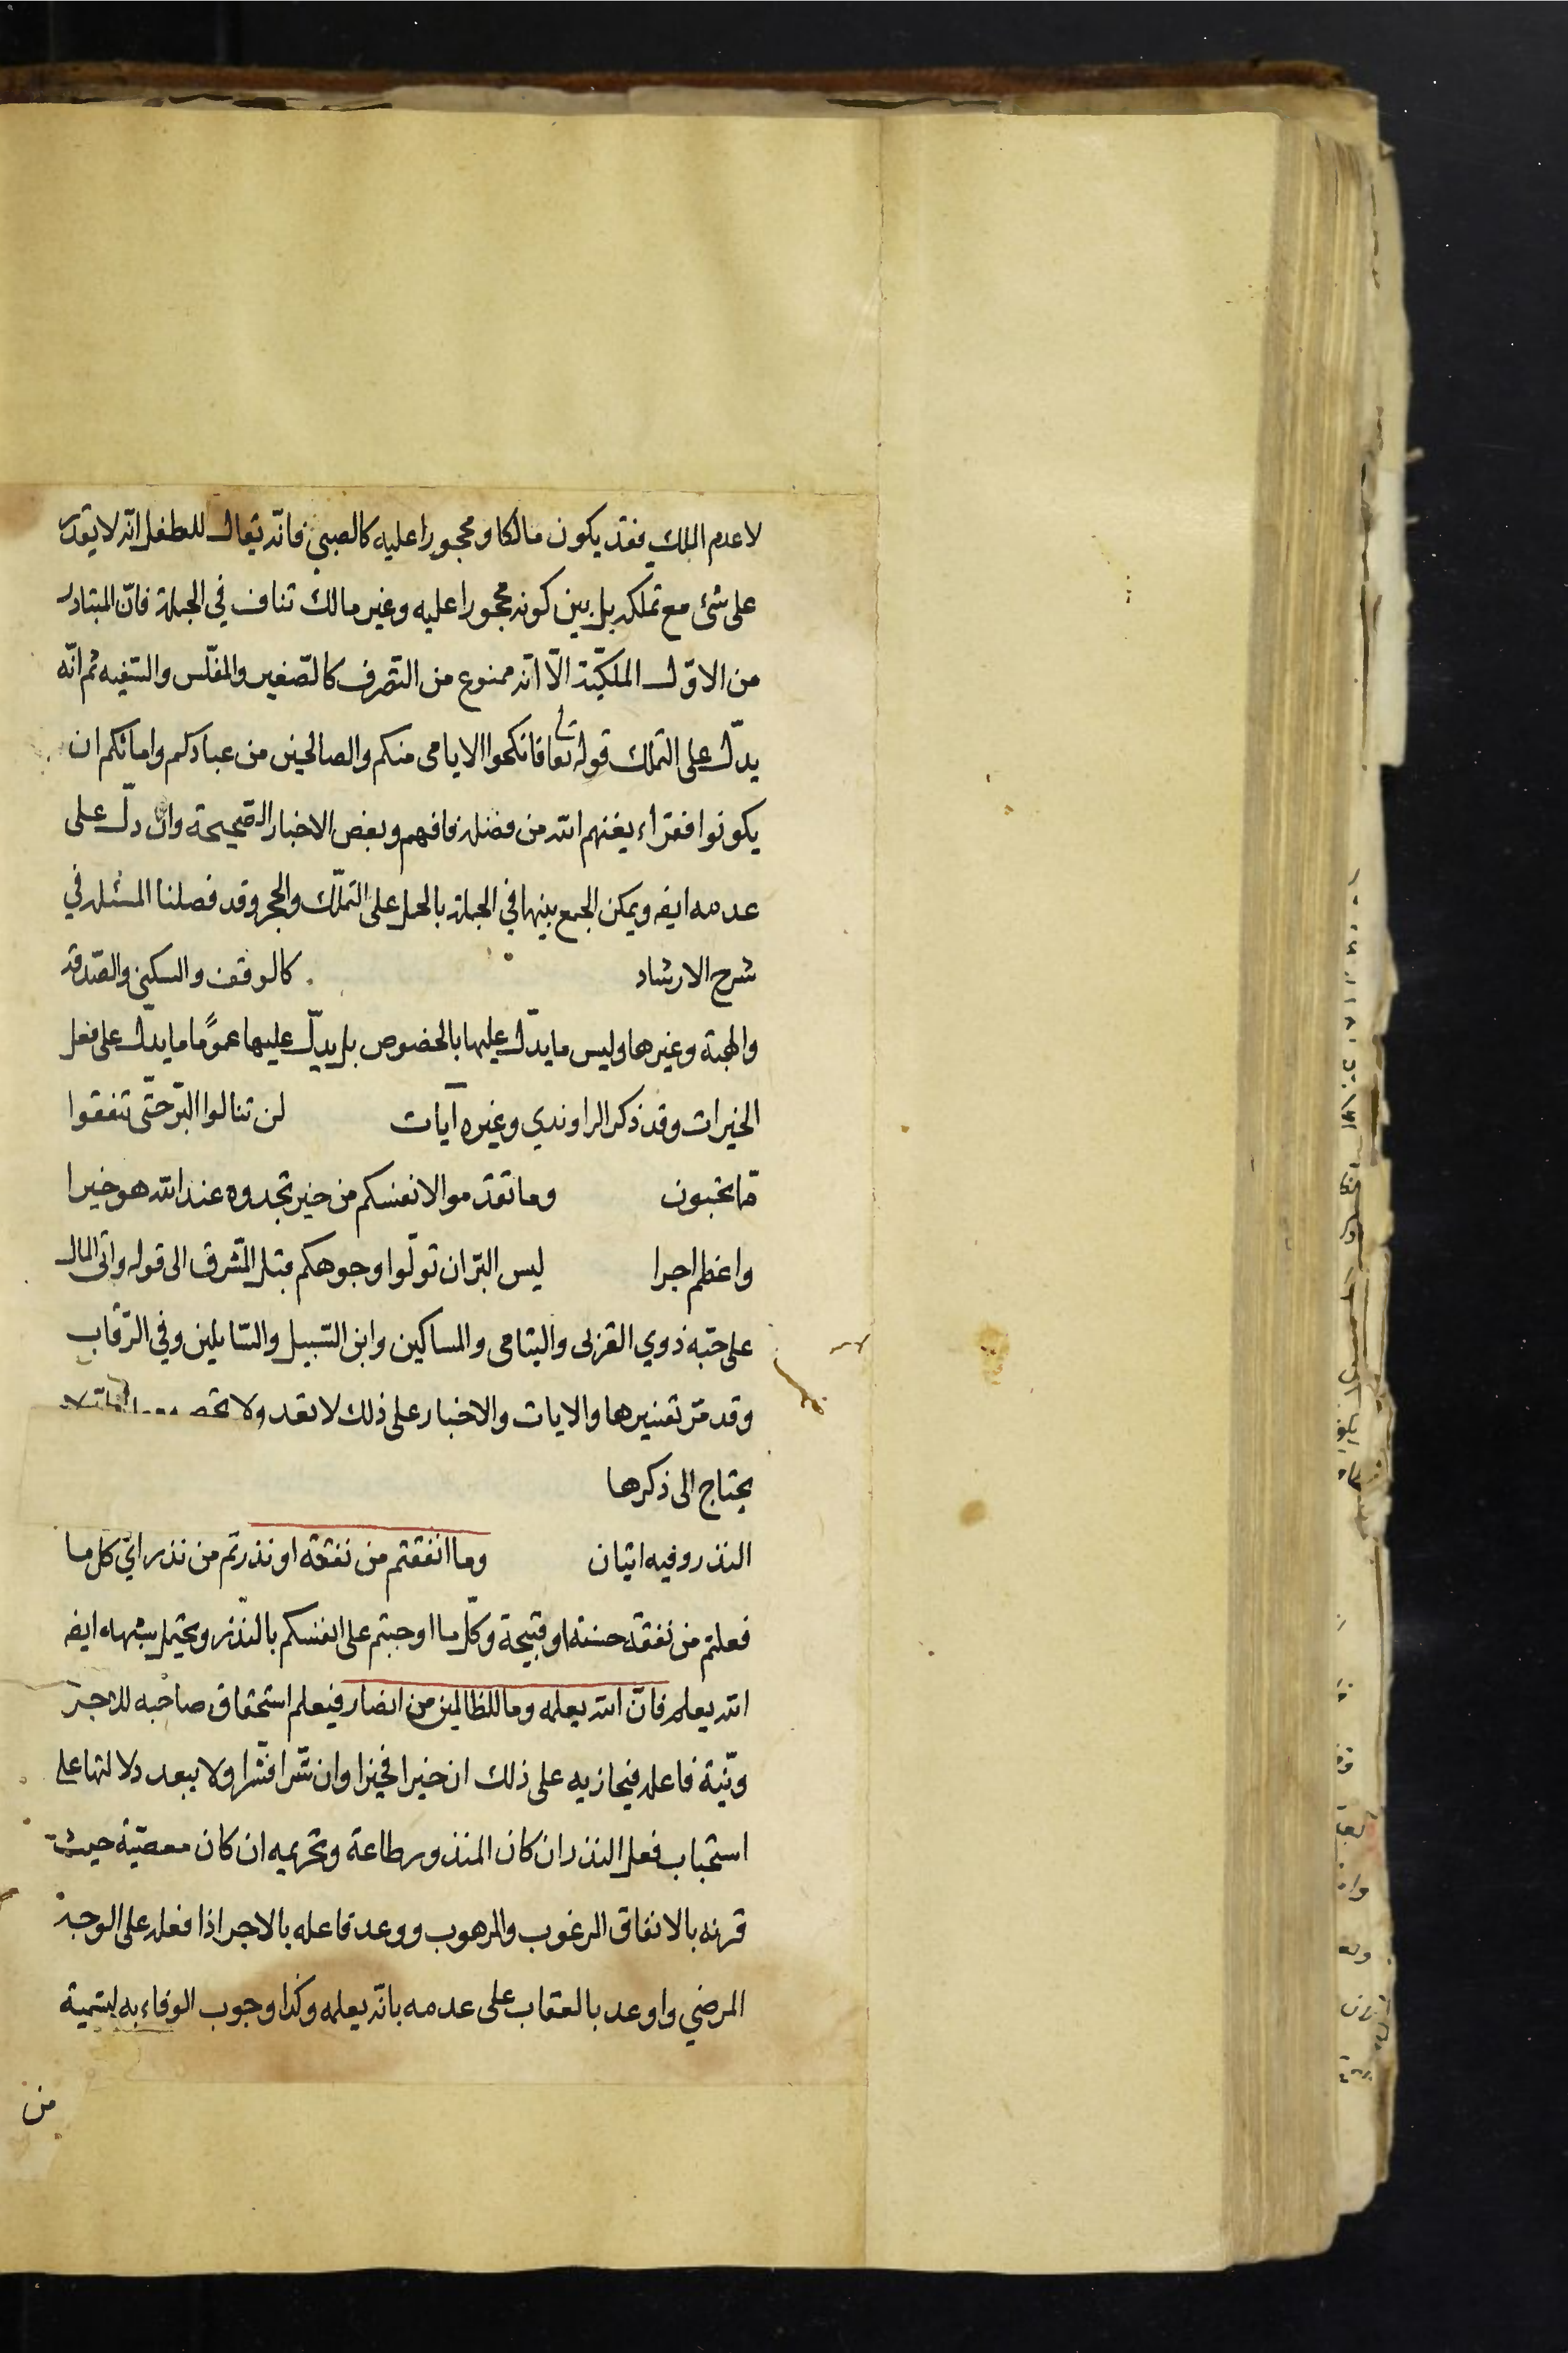 لا عدم الملك فقد يكون مالكا ومحجورا عليه كالصبي فانه يقال للطفل انه لا يقدر
على شئ مع تملكه بل بين كونه محجورا عليه وغير مالك تناف في الجملة فانّ المتبادر
من الاوّل الملكيّة الّا انه ممنوع من التصرف كالصّغير والمفلّس والسّفيه ثم انّه
يدلّ على التملك قوله تعا فانكحوا الايامى منكم والصالحين من عبادكم وامائكم ان
يكونوا فقراء يغنهم الله من فضله فافهم وبعض الاخبار الصّحيحة وان دلّ على
عدمه ايضا ويمكن الجمع بينها في الجملة بالحمل على التملّك والحجر وقد فصلنا المسئلة في
شرح الارشاد كالوقف والسكنى والصّدقة
والهبة وغيرها وليس ما يدّل عليها بالخصوص بل يدلّ عليها عموًما ما يدل على فعل
الخيرات وقد ذكر الراوندي وغيره آيات لن تنالوا البرّ حتّى تنفقوا
ممّا تحبون وما تقدّموا لانفسكم من خير تجدوه عند الله هو خيرا
واعظم اجرا ليس البرّ ان تولّوا وجوهكم قبل المشرق الى قوله واتى المال
على حبّه ذوي القربى واليتامى والمساكين وابن السّبيل والسّايلين وفي الرّقاب
وقد مرّ تفسيرها والايات والاخبار على ذلك لا تعد ولا تحصى
يحتاج الى ذكرها
النذر وفيه ايتان وما انفقتم من نفقة او نذرتم من نذر اي كل ما
فعلتم من نفقة حسنة او قبيحة وكلّ ما اوجبتم على انفسكم بالنّذر ويحتمل شبهه ايضا
الله يعلمه فانّ الله يعلمه وما للظالمين من انصار فيعلم استحقاق صاحبه للاجر
ونيّة فاعله فيجازيه على ذلك ان خيرا فخيرا وان شرّا فشّرا ولا يبعد دلالتها على
استحباب فعل النذر ان كان المنذور طاعة وتحريمه ان كان معصيّة حيث
قرنه بالانفاق المرغوب والمرهوب ووعد فاعله بالاجر اذا فعله على الوجه
المرضي واوعد بالعقاب على عدمه بانه يعلمه وكذا وجوب الوفاء به لتسمية
من